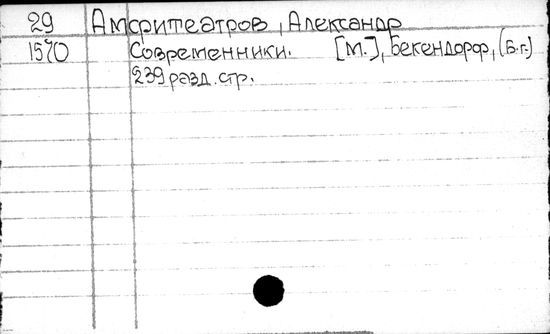 29 Амфитеатров, Александр
1570 Современники. [М.], Бекендорф, (Б.г.)
239 разд. стр.